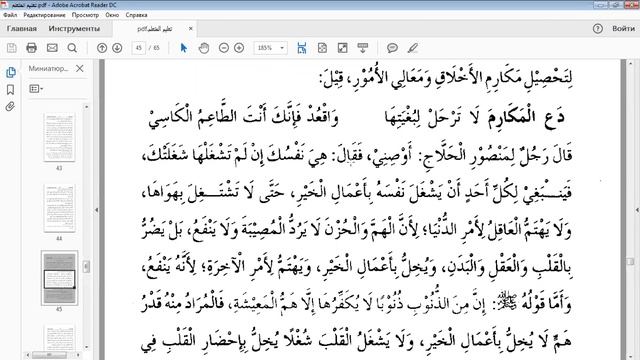 تعليم المتعلم.pdf - Adobe Acrobat Reader DC
Файл Редактирование Просмотр Окно Справка
Главная Инструменты تعليم المتعلم.pdf ×
45 / 65 185%
Миниатюр... ×
43
44
45
لِتَحْصِيْلِ مَكَارِمِ الْأَخْلَاقِ وَمَعَالِي الْأُمُوْرِ، قِيْلَ:
دَعِ الْمَكَارِمَ لَا تَرْحَلْ لِبُغْيَتِهَا وَاقْعُدْ فَإِنَّكَ أَنْتَ الطَّاعِمُ الْكَاسِيْ
قَالَ رَجُلٌ لِمَنْصُوْرِ الْحَلَّاجِ: أَوْصِنِيْ، فَقَالَ: هِيَ نَفْسُكَ إِنْ لَمْ تَشْغَلْهَا شَغَلَتْكَ،
فَيَنْبَغِيْ لِكُلِّ أَحَدٍ أَنْ يَشْغَلَ نَفْسَهُ بِأَعْمَالِ الْخَيْرِ، حَتَّى لَا تَشْتَغِلَ بِهَوَاهَا،
وَلَا يَهْتَمُّ الْعَاقِلُ لِأَمْرِ الدُّنْيَا؛ لِأَنَّ الْهَمَّ وَالْحُزْنَ لَا يَرُدُّ الْمُصِيْبَةَ وَلَا يَنْفَعُ، بَلْ يَضُرُّ
بِالْقَلْبِ وَالْعَقْلِ وَالْبَدَنِ، وَيُخِلُّ بِأَعْمَالِ الْخَيْرِ، وَيَهْتَمُّ لِأَمْرِ الْآخِرَةِ؛ لِأَنَّهُ يَنْفَعُ،
وَأَمَّا قَوْلُهُ ﷺ: إِنَّ مِنَ الذُّنُوْبِ ذُنُوْبًا لَا يُكَفِّرُهَا إِلَّا هَمُّ الْمَعِيْشَةِ، فَالْمُرَادُ مِنْهُ قَدْرُ
هَمٍّ لَا يُخِلُّ بِأَعْمَالِ الْخَيْرِ، وَلَا يَشْغَلُ الْقَلْبَ شُغْلًا يُخِلُّ بِإِحْضَارِ الْقَلْبِ فِي